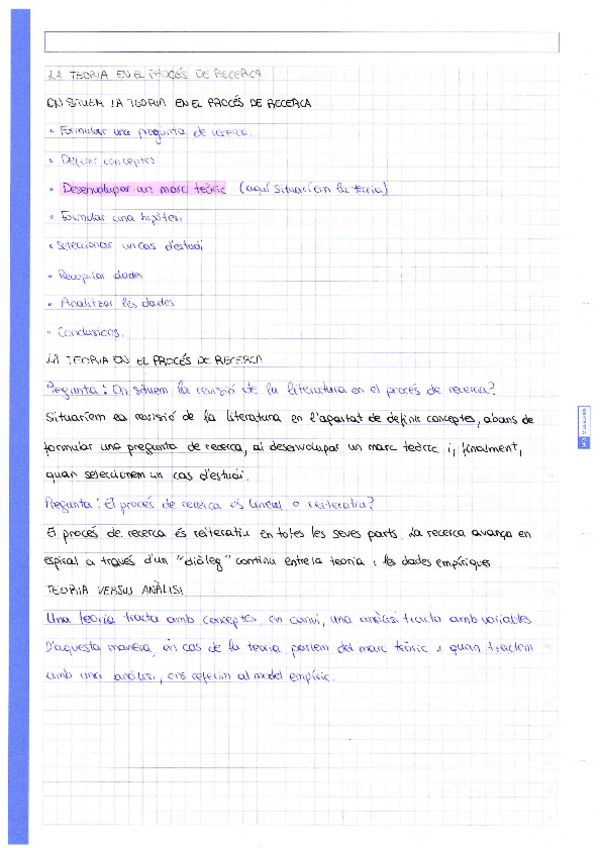 LA TEORIA EN EL PROCÉS DE RECERCA
ON SITUEM LA TEORIA EN EL PROCÉS DE RECERCA
• Formular una pregunta de recerca.
• Definir conceptes.
• Desenvolupar un marc teòric (aquí situaríem la teoria)
• Formular una hipòtesi
• Seleccionar un cas d'estudi
• Recopilar dades
• Analitzar les dades
• Conclusions.
LA TEORIA EN EL PROCÉS DE RECERCA
Pregunta: On situem la revisió de la literatura en el procés de recerca?
Situaríem la revisió de la literatura en l'apartat de definir conceptes, abans de
formular una pregunta de recerca, al desenvolupar un marc teòric i, finalment,
quan seleccionem un cas d'estudi.
Pregunta: El procés de recerca és lineal o reiteratiu?
El procés de recerca és reiteratiu en totes les seves parts. La recerca avança en
espiral a través d'un "diàleg" continu entre la teoria i les dades empíriques
TEORIA VERSUS ANÀLISI
Una teoria tracta amb conceptes, en canvi, una anàlisi tracta amb variables
D'aquesta manera, en cas de la teoria parlem del marc teòric i quan tractem
amb una anàlisi, ens referim al model empíric.